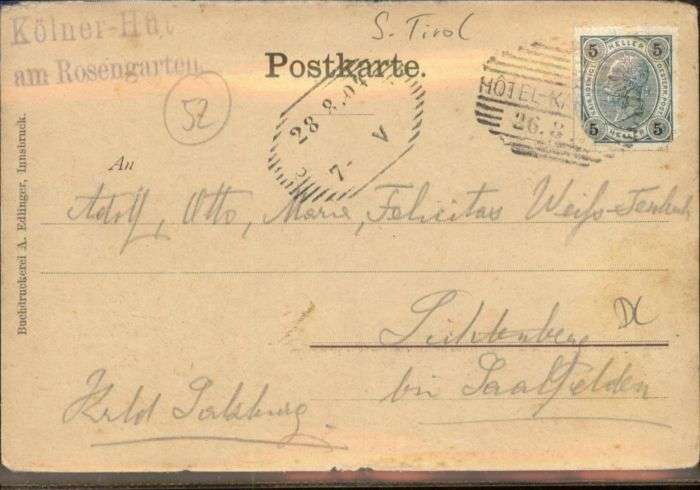 Kölner-Hüt
am Rosengarten
S. Tirol
Postkarte.
52
HÔTEL-K
26. 8.
5 HELLER 5
5 HELLER 5
28 8.0
7- V
An
Adolf, Otto, Marie, Felicitas Weiß-
Lichtenberg
DC
bei Saalfelden
Salzburg.
Buchdruckerei A. Edlinger, Innsbruck.